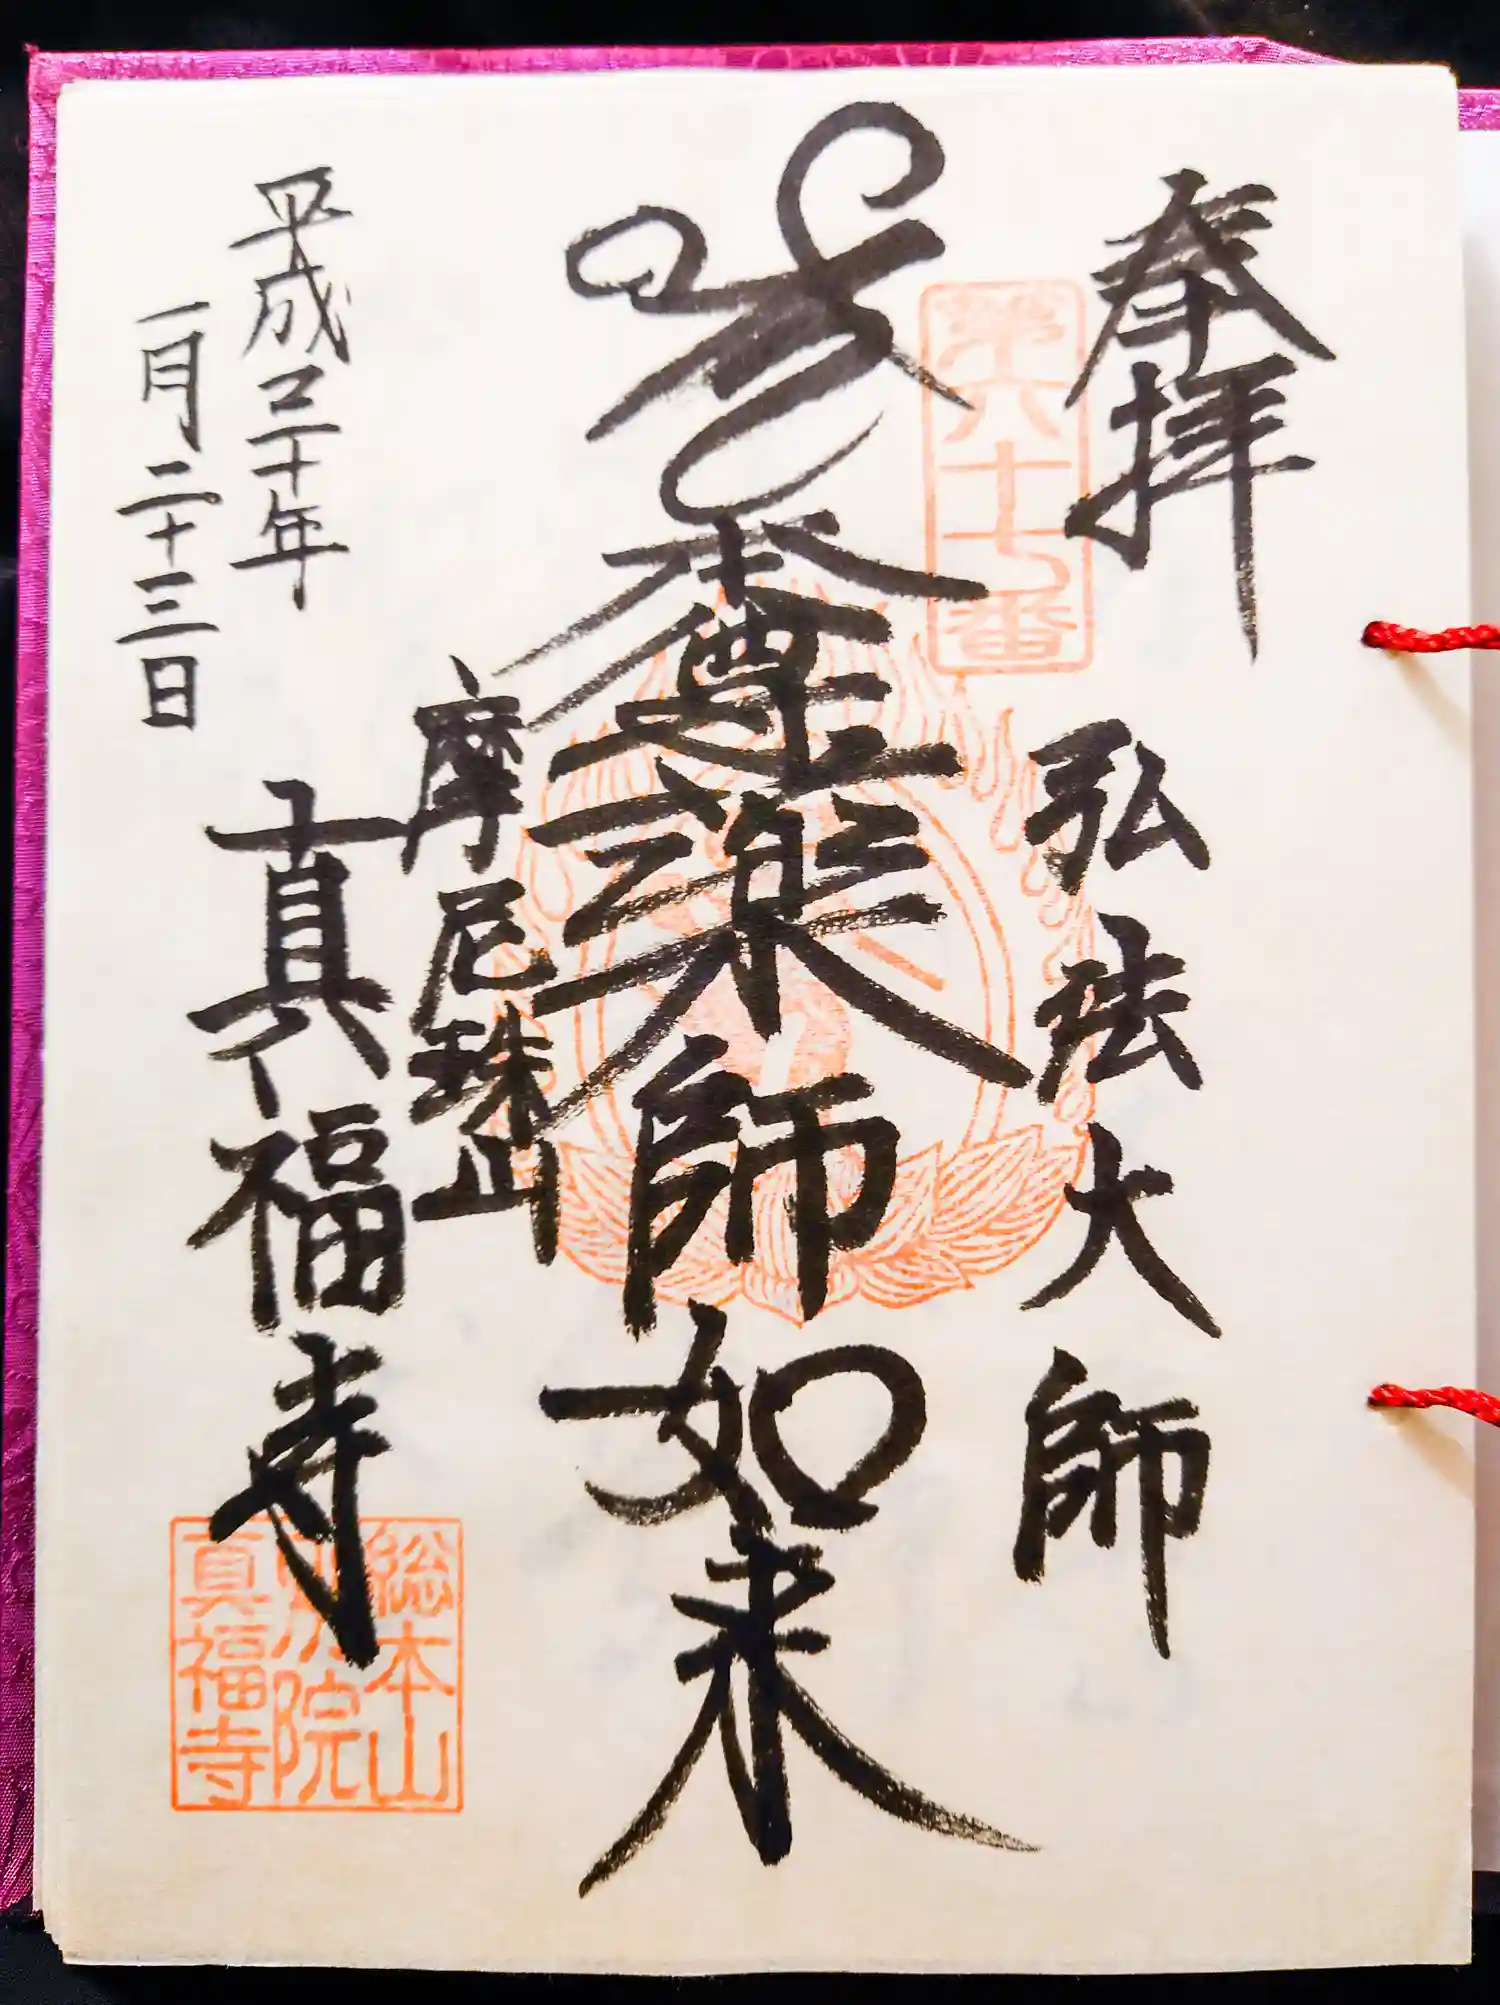 奉拝
第六十七番
弘法大師
本尊薬師如来
摩尼珠山
真福寺
平成三十年
一月二十三日
総本山
別院
真福寺